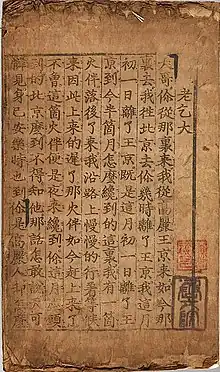 老乞大
大哥你從那裏來我從高麗王京來如今那
裏去我往北京去你幾時離了王京我這月
初一日離了王京既是這月初一日離了王
京到今半箇月怎麽纔到的這裏我有一箇
火伴落後了來我沿路上慢慢的行着等候
來因此上來的遲了那火伴如今赶上來了
不曾這箇火伴便是夜來纔到你這月盡頭
到的北京麽到不得知他那話怎敢說天可
憐見身己安樂時也到你是高麗人却怎麽